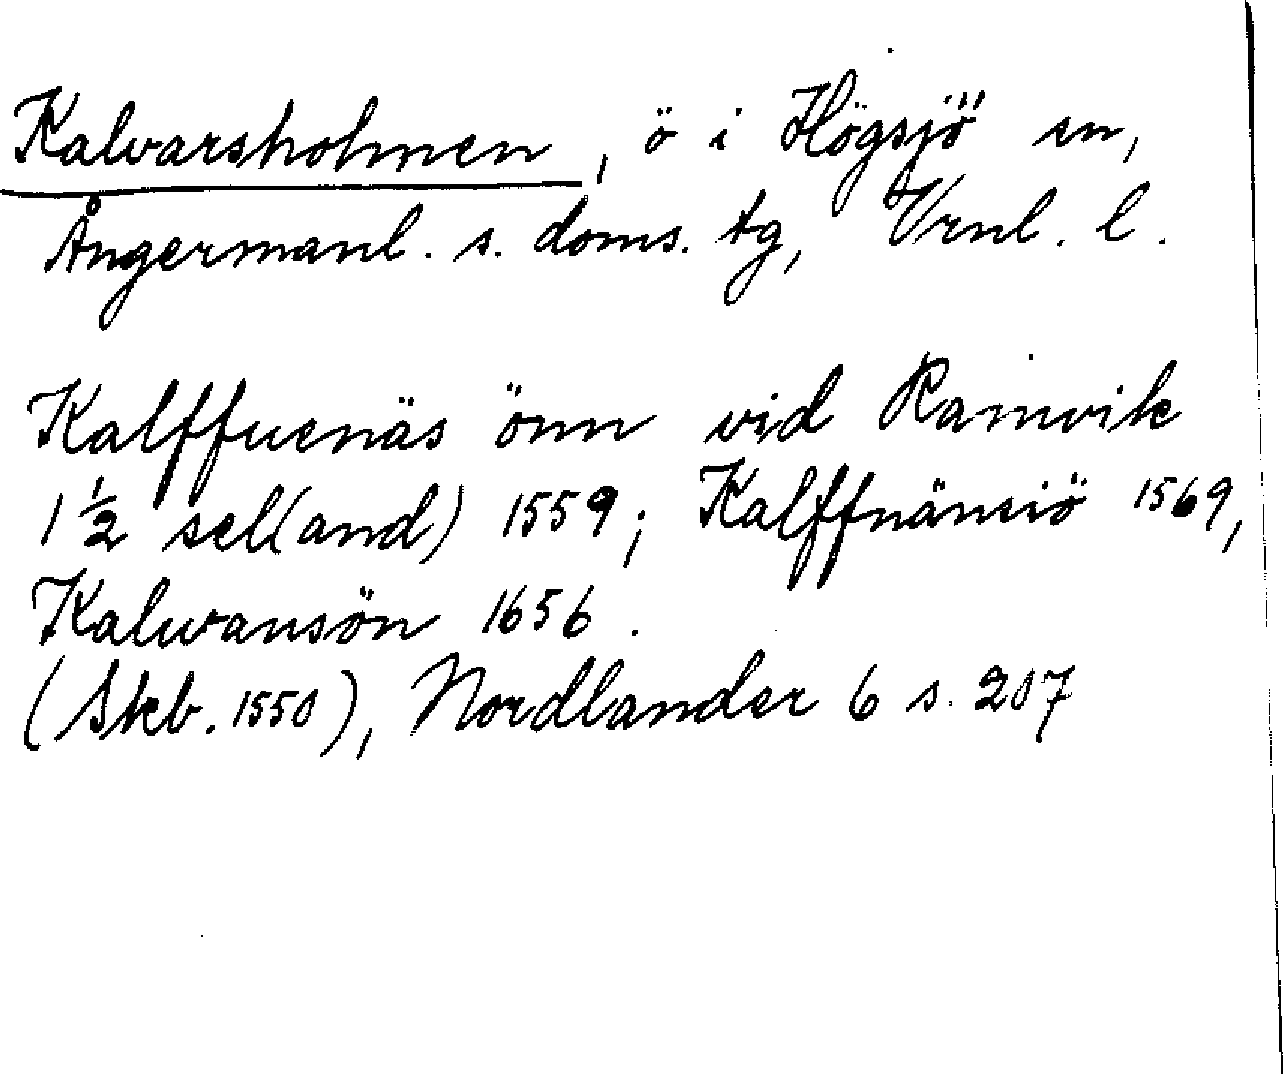 Kalvarsholmen, ö i Högsjö sn,
Ångermanl. s. doms. tg, Vrnl. l.
Kalffuenäs önn vid Ramvik
1 1/2 sel(and) 1559; Kalffnänsiö 1569,
Kalwansön 1656.
(Skb. 1550), Nordlander 6 s. 207